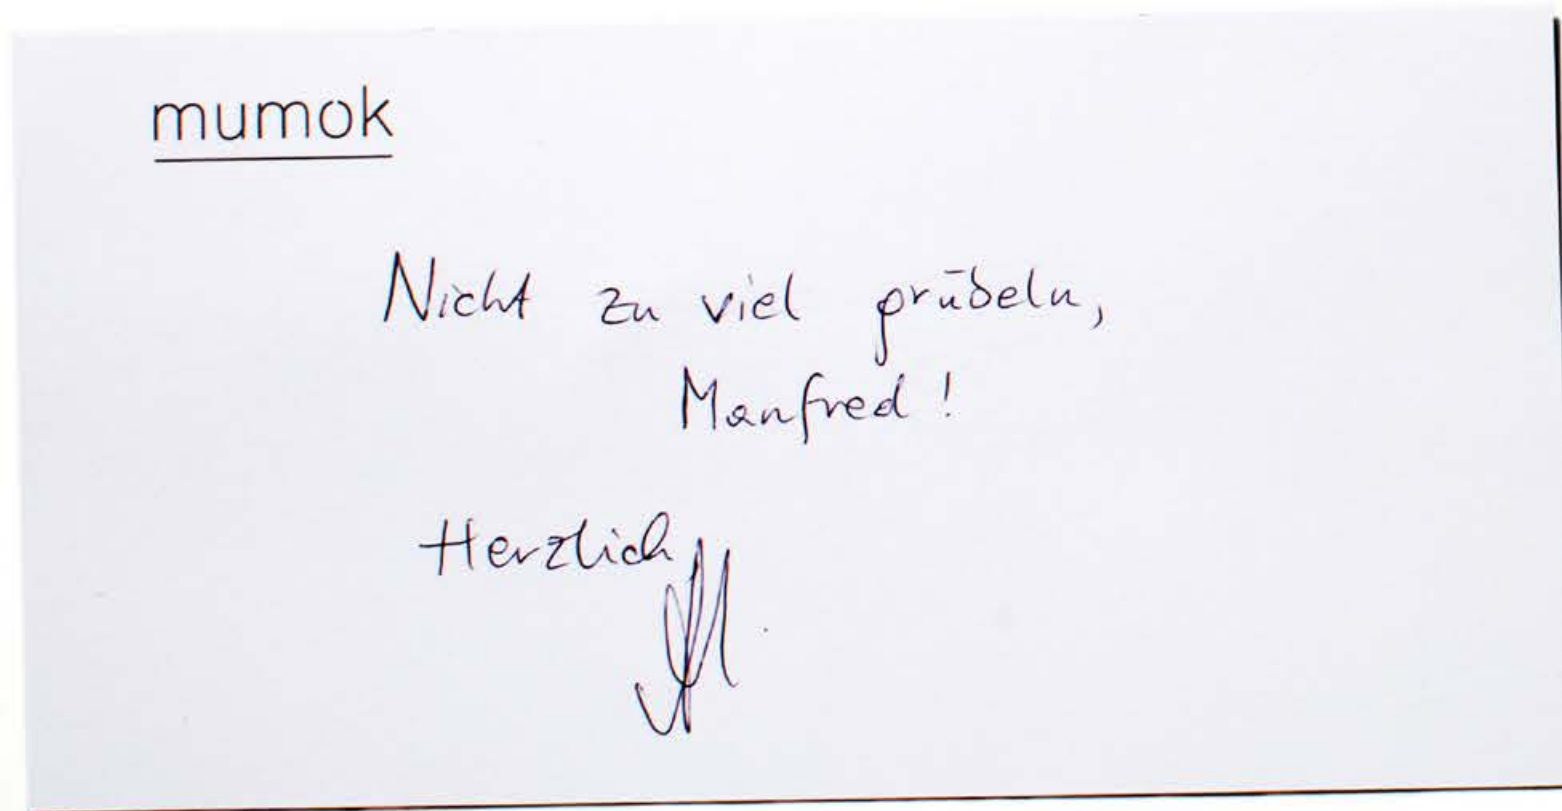 mumok
Nicht zu viel grübeln,
Manfred!
Herzlich